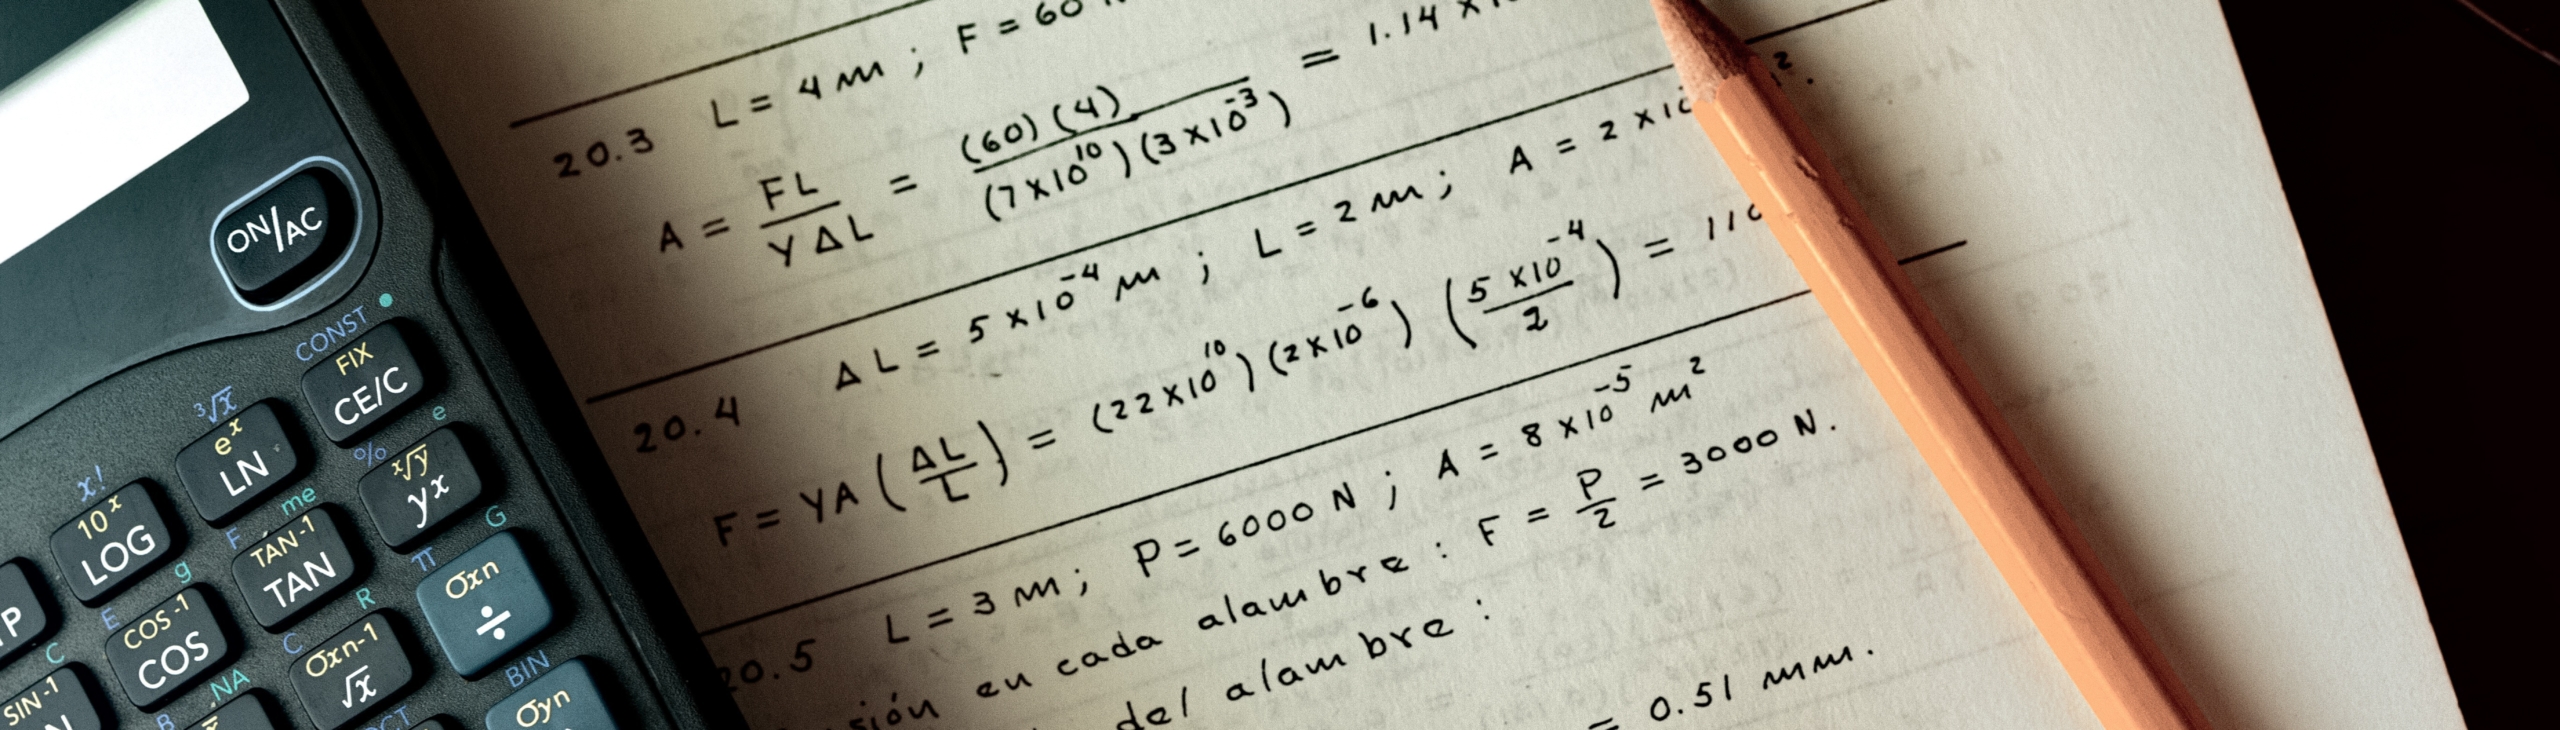 ON/AC
CONST
FIX
CE/C
³√x
eˣ
LN
%
ˣ√y
yˣ
e
x!
10ˣ
LOG
F
me
TAN-1
TAN
π
G
σxn
÷
E
g
COS-1
COS
C
R
σxn-1
√x
BIN
σyn
C
SIN-1
B
NA
P
L = 4 m ; F = 60
20.3
A = FL / Y ΔL = (60)(4) / (7×10¹⁰)(3×10⁻³) = 1.14 ×
20.4 ΔL = 5×10⁻⁴ m ; L = 2 m ; A = 2 ×10
F = YA (ΔL / L) = (22×10¹⁰)(2×10⁻⁶)(5×10⁻⁴ / 2) = 110
20.5 L = 3 m ; P = 6000 N ; A = 8×10⁻⁵ m²
sión en cada alambre : F = P / 2 = 3000 N.
del alambre :
= 0.51 mm.